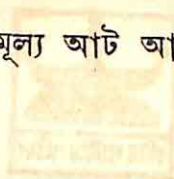 মূল্য আট আ